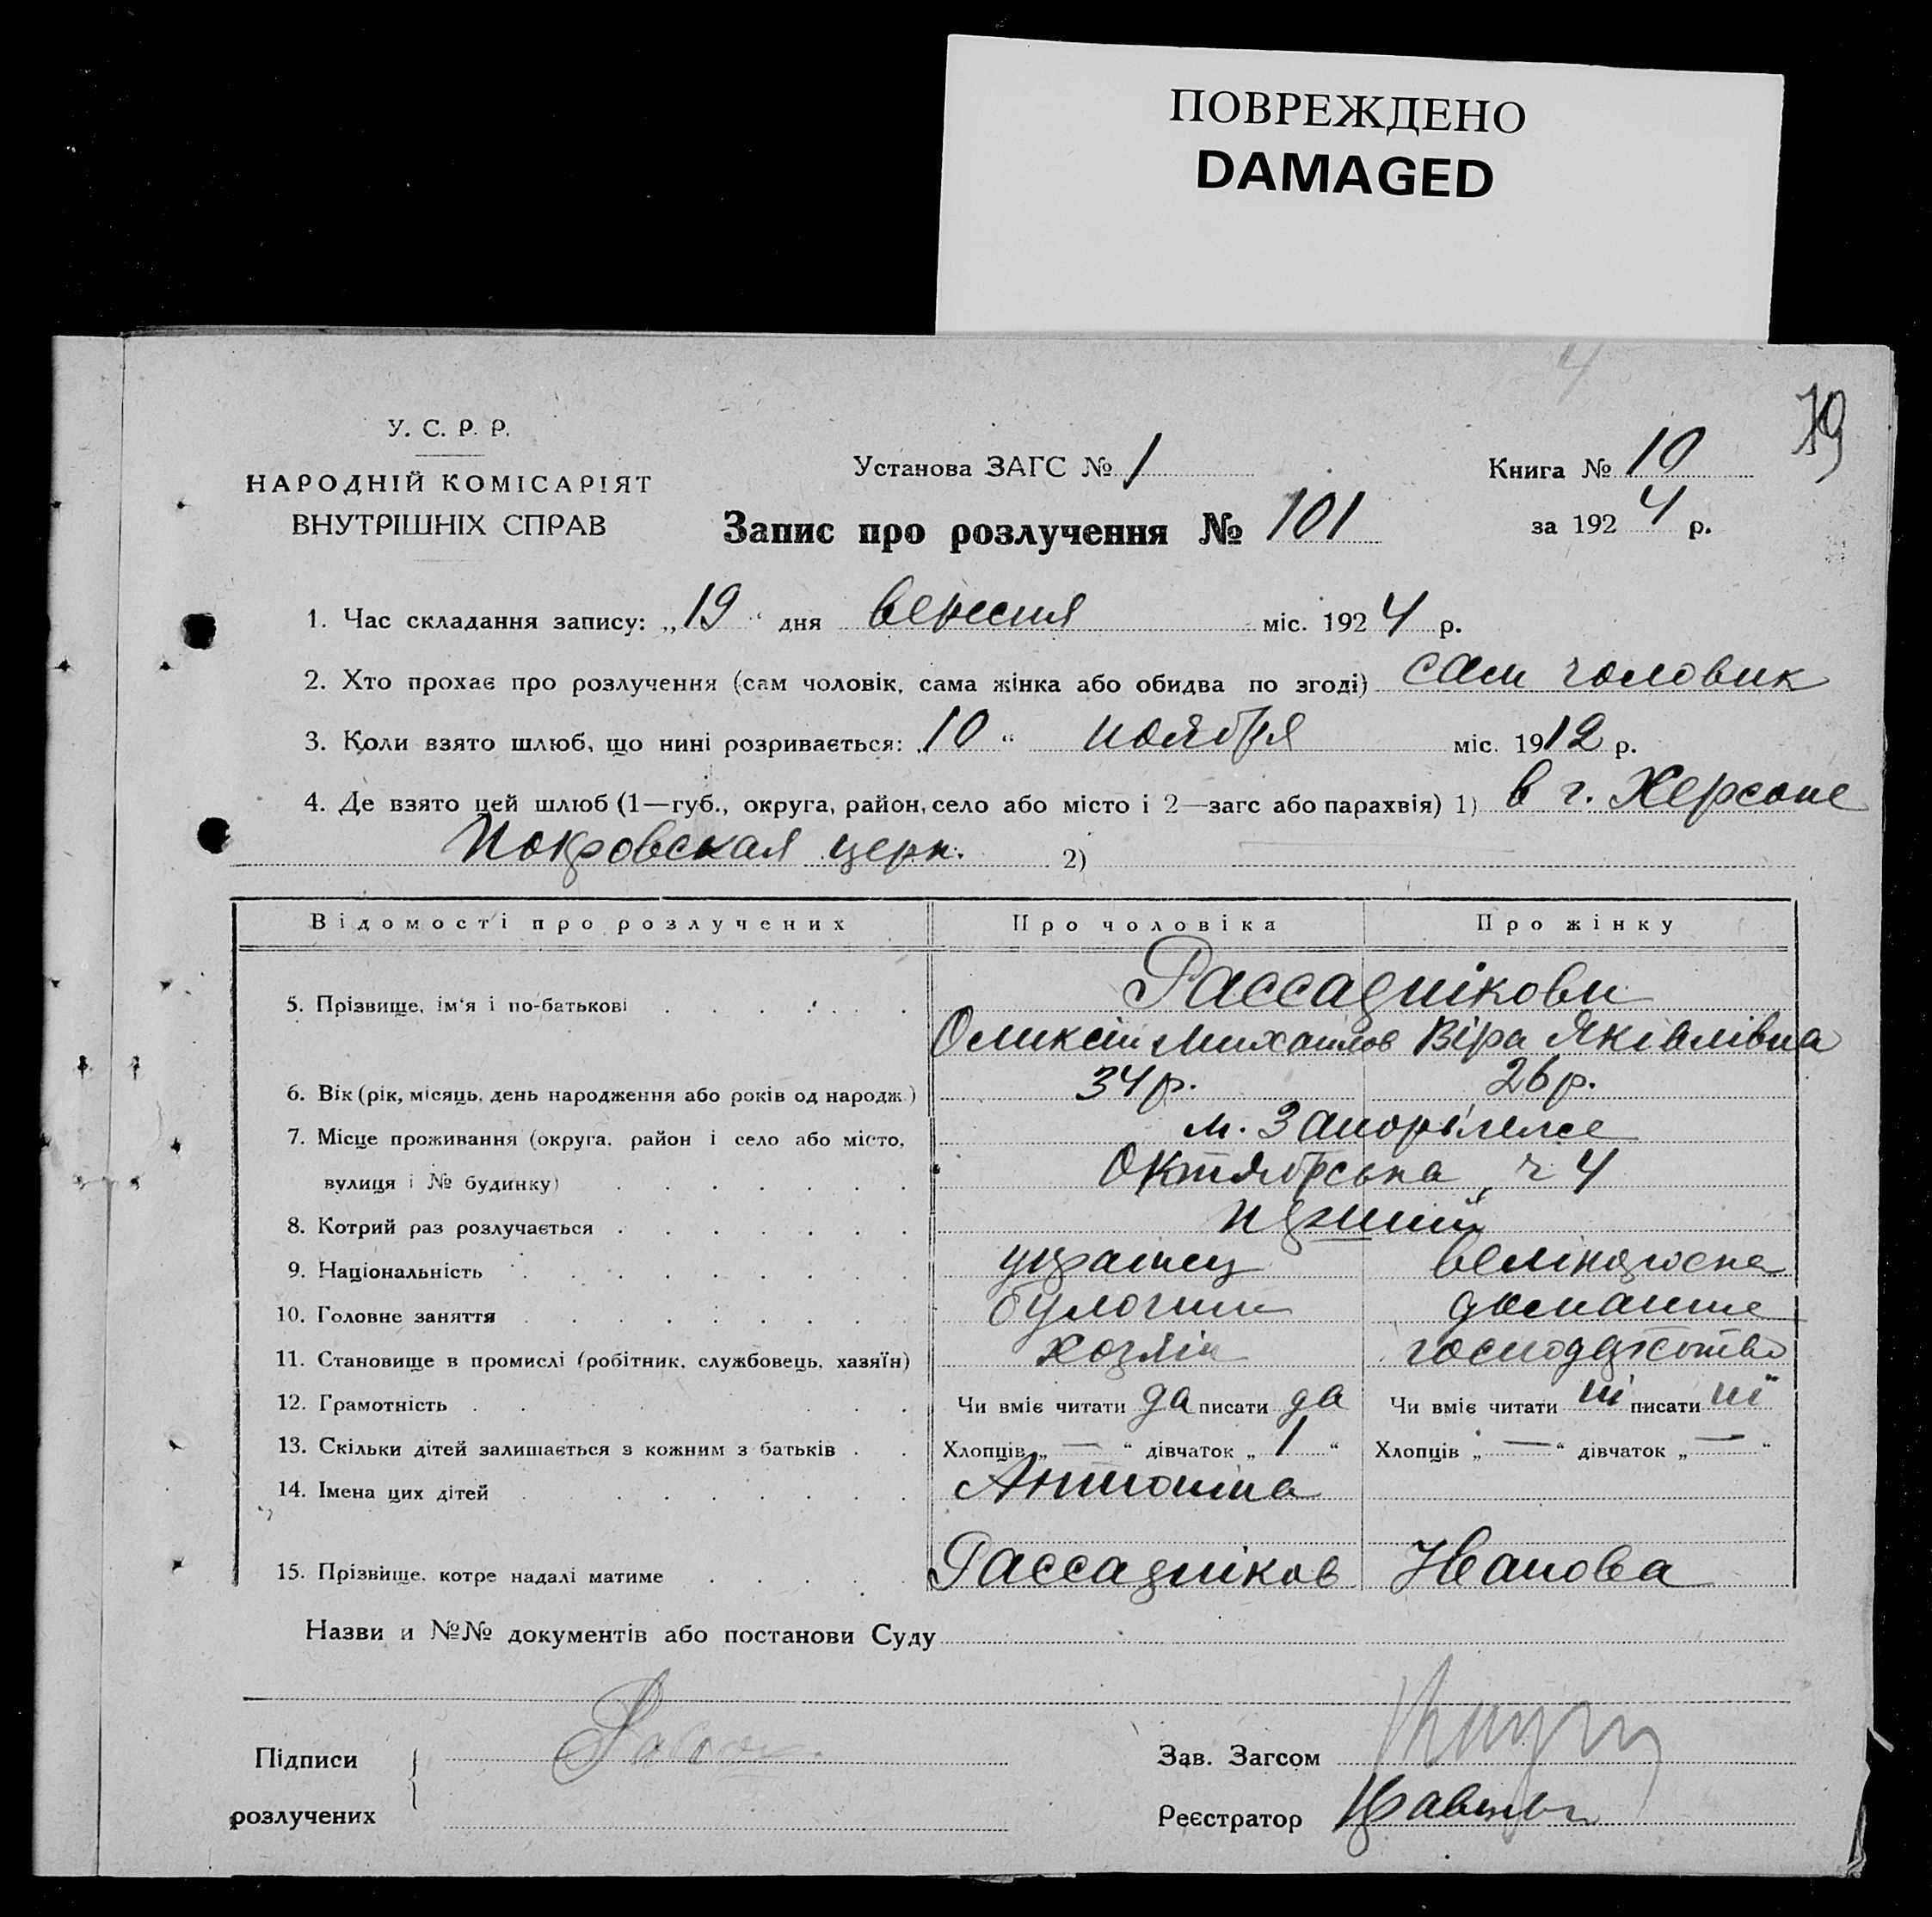 ПОВРЕЖДЕНО
DAMAGED
4
79
У. С. Р. Р.
НАРОДНІЙ КОМІСАРІЯТ
ВНУТРІШНІХ СПРАВ
Установа ЗАГС № 1
Книга № 10
Запис про розлучення № 101
за 1924 р.
1. Час складання запису: „19“ дня вересня міс. 1924 р.
2. Хто прохає про розлучення (сам чоловік, сама жінка або обидва по згоді) сам чоловик
3. Коли взято шлюб, що нині розривається: „10“ ноября міс. 1912 р.
4. Де взято цей шлюб (1—губ., округа, район, село або місто і 2—загс або парахвія) 1) в г. Херсоне
Покровская церк. 2)
Відомості про розлучених Про чоловіка Про жінку
5. Прізвище, ім‘я і по-батькові Рассаднікови
Оликсій Михайлов Віра Яківлівна
6. Вік (рік, місяць, день народження або років од народж.) 34 р. 26 р.
7. Місце проживання (округа, район і село або місто, м. Запоріжже
вулиця і № будинку) Октябрська, ч 4
8. Котрий раз розлучається
9. Національність украінец
10. Головне заняття домашнє
11. Становище в промислі (робітник, службовець, хазяїн) хозяін господарство
12. Грамотність Чи вміє читати да писати да Чи вміє читати ні писати ні
13. Скільки дітей залишається з кожним з батьків Хлопців „—“ дівчаток „1“ Хлопців „—“ дівчаток „—“
14. Імена цих дітей Антоніна
15. Прізвище, котре надалі матиме Рассадніков Іванова
Назви и №№ документів або постанови Суду
Підписи
розлучених
Зав. Загсом
Реєстратор